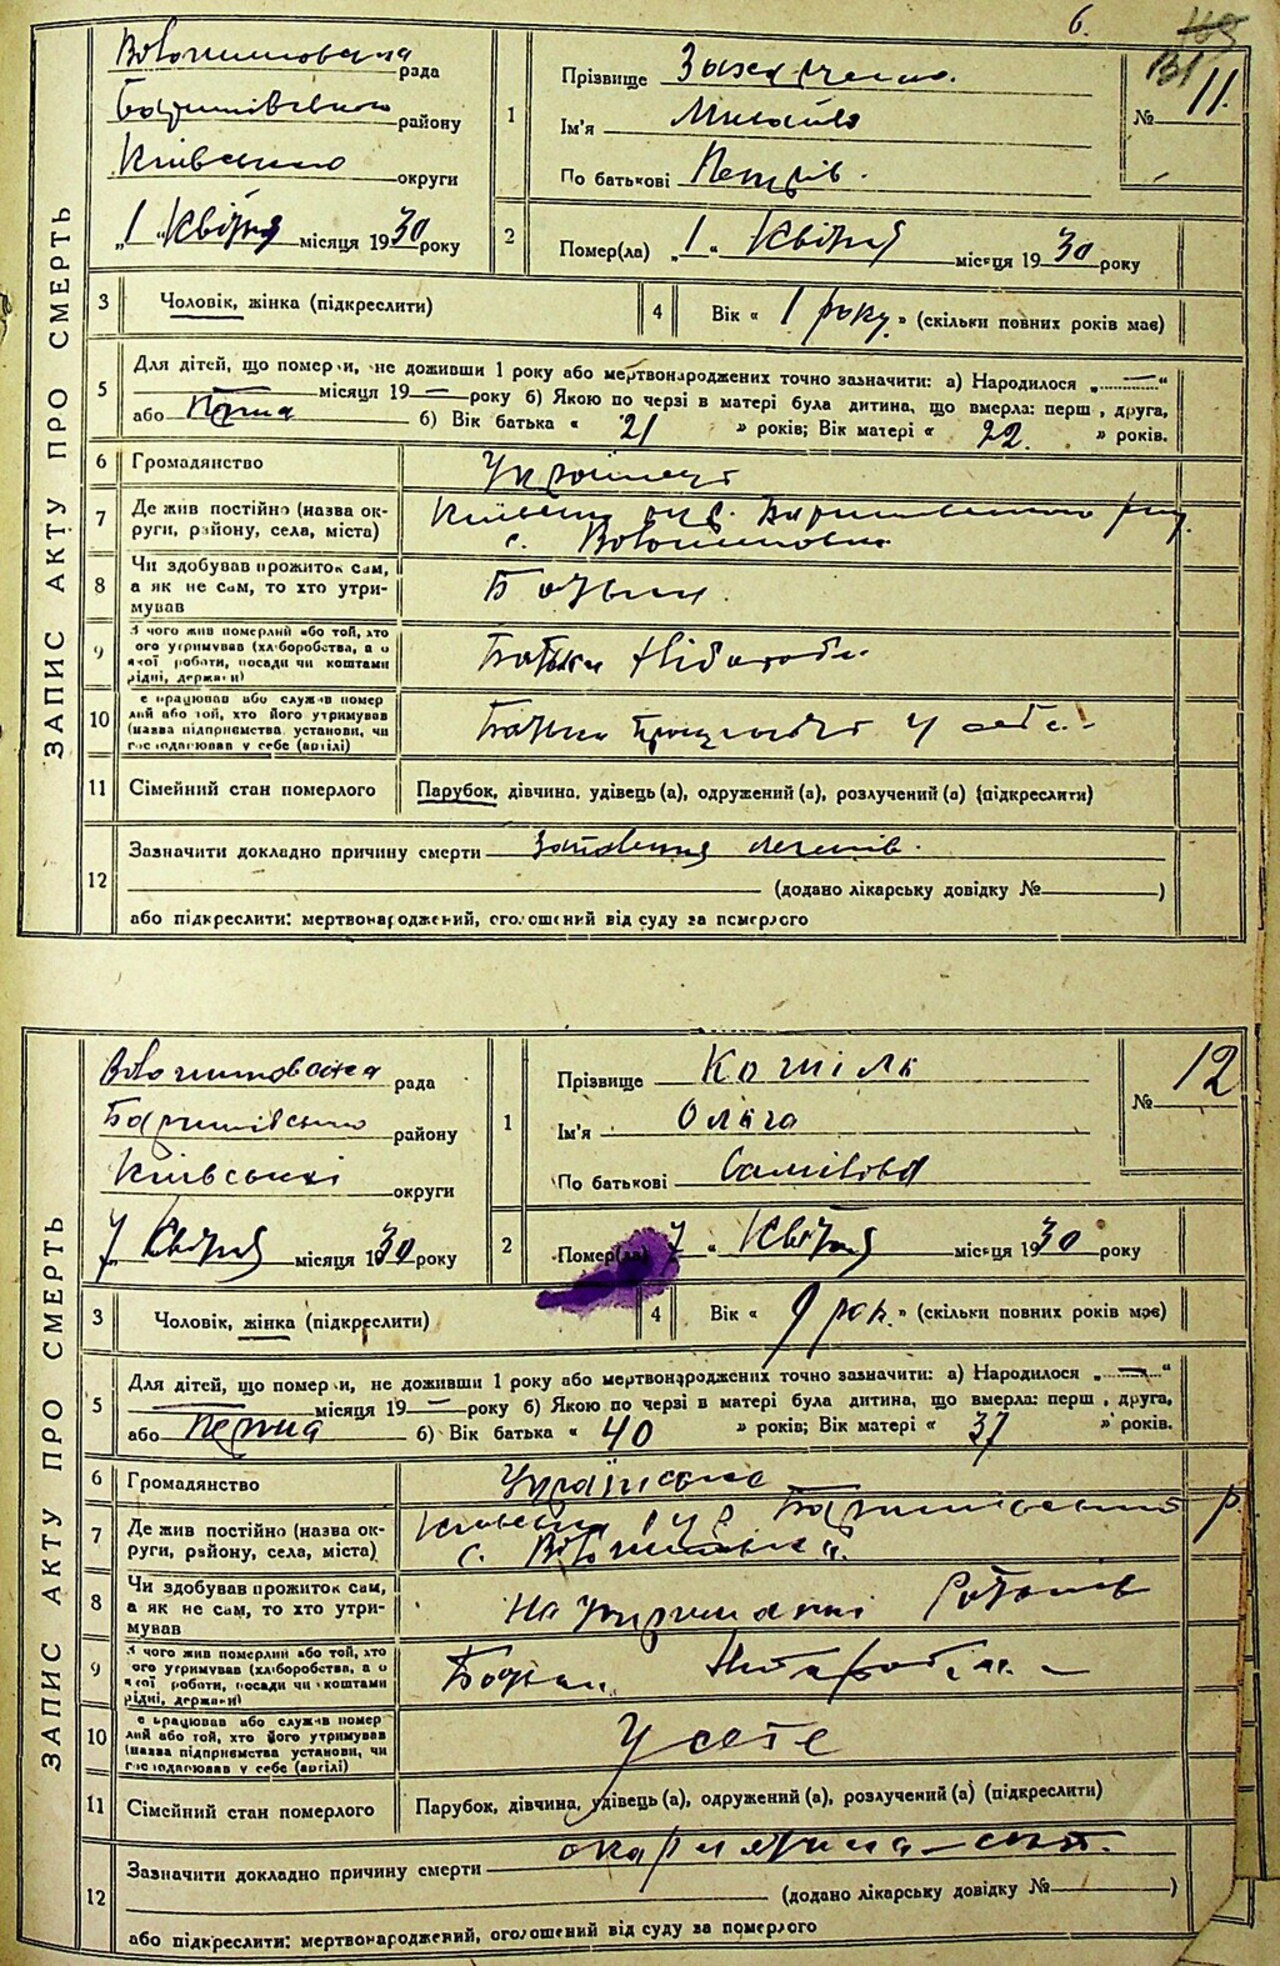 6.
169
131
ЗАПИС АКТУ ПРО СМЕРТЬ
Волошиновська рада
Баришівського району
Київською округи
„1“ Квітня місяця 1930 року
1
Прізвище Захарченко.
Ім'я Михайло
По батькові Петрів.
№ 11.
2
Помер(ла) „1“ Квітня місяця 1930 року
3 Чоловік, жінка (підкреслити)
4 Вік « 1 року » (скільки повних років має)
5
Для дітей, що померли, не доживши 1 року або мертвонароджених точно зазначити: а) Народилося „—“
— місяця 19 — року б) Якою по черзі в матері була дитина, що вмерла: перш , друга,
або Перша б) Вік батька « 21 » років; Вік матері « 22. » років.
6 Громадянство
7 Де жив постійно (назва ок- Київськ окр. Баришевського
руги, району, села, міста) с. Волошиновка
8
Чи здобував прожиток сам,
а як не сам, то хто утри- Батьки.
мував
9
З чого жив померлий або той, хто
ого утримував (хліборобства, а о
якої роботи, посади чи коштами Батьки
рідні, держави)
10
е працював або служив помер
лий або той, хто його утримував
(назва підприємства установи, чи Батьки У себе.
господарював у себе (артілі)
11 Сімейний стан померлого Парубок, дівчина, удівець(а), одружений(а), розлучений(а) (підкреслити)
12
Зазначити докладно причину смерти Запалення легенів.
(додано лікарську довідку № )
або підкреслити: мертвонароджений, оголошений від суду за померлого
ЗАПИС АКТУ ПРО СМЕРТЬ
Волошиновська рада
Баришівсько району
Київської округи
7 Квітня місяця 1930 року
1
Прізвище
Ім'я Ольга
По батькові Самійлова
№ 12
2
Помер(ла) 7 « Квітня місяця 1930 року
3 Чоловік, жінка (підкреслити)
4 Вік « 9 рок. » (скільки повних років має)
5
Для дітей, що померли, не доживши 1 року або мертвонароджених точно зазначити: а) Народилося „—“
— місяця 19 — року б) Якою по черзі в матері була дитина, що вмерла: перш , друга,
або Перша б) Вік батька « 40 » років; Вік матері « 37 » років.
6 Громадянство Українське
7 Де жив постійно (назва ок- Київськ окр Баришевського р.
руги, району, села, міста) с. Волошиновка.
8
Чи здобував прожиток сам,
а як не сам, то хто утри- На утриманні
мував
9
З чого жив померлий або той, хто
ого утримував (хліборобства, а о
якої роботи, посади чи коштами Батьки
рідні, держави)
10
е працював або служив помер
лий або той, хто його утримував У себе
(назва підприємства установи, чи
господарював у себе (артілі)
11 Сімейний стан померлого Парубок, дівчина, удівець(а), одружений(а), розлучений(а) (підкреслити)
12
Зазначити докладно причину смерти шкарлятина
(додано лікарську довідку № )
або підкреслити: мертвонароджений, оголошений від суду за померлого